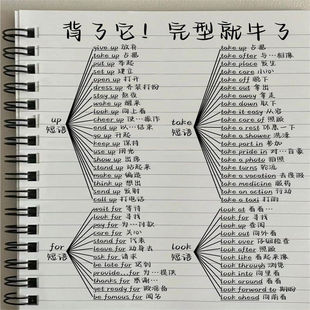 背了它！完型就牛了
give up 放弃
take up 占据
put up 举起
set up 建立
open up 打开
dress up 乔装打扮
stay up 熬夜
wake up 醒来
look up 向上看
cheer up 使…振作
end up 以…结束
go up 升起
keep up 保持
use up 用光
show up 出席
stand up 站起来
make up 编造
think up 想出
send up 发射
call up 打电话
up 短语
take up 占据
take after 与…相像
take place 发生
take care 小心
take off 脱下
take out 拿出
take away 拿走
take down 取下
take it easy 从容
take care of 照顾
take a rest 休息一下
take a shower 洗澡
take part in 参加
take pride in 对…自豪
take a photo 拍照
take turns 轮流
take a vacation 去度假
take medicine 服药
take an action 行动
take a taxi 打的
take 短语
wait for 等待
look for 寻找
pay for 为…付款
care for 关心
stand for 代表
leave for 动身去
ask for 请求
be late for 迟到
provide...for 为…提供
thanks for 感谢…
get ready for 做准备
be famous for 闻名
for 短语
look at 看着
look for 寻找
look up 查阅
look out 向外看
look over 仔细检查
look after 照顾
look like 看起来像
look through 浏览
look into 向里看
look around 看看
look forward to 期盼
look ahead 向前看
look 短语